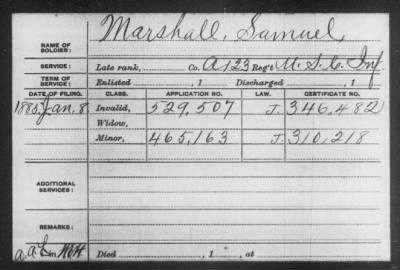 Marshall, Samuel,
NAME OF SOLDIER:
SERVICE: Late rank, Co. A, 23 Reg't U. S. C. Inf.
TERM OF SERVICE: Enlisted , 1 Discharged , 1
DATE OF FILING. CLASS. APPLICATION NO. LAW. CERTIFICATE NO.
1885, Jan. 8. Invalid, 529,507 J. 346,482
Widow,
Minor, 465,163 J. 310,218
ADDITIONAL SERVICES:
REMARKS:
Died , 1 , at